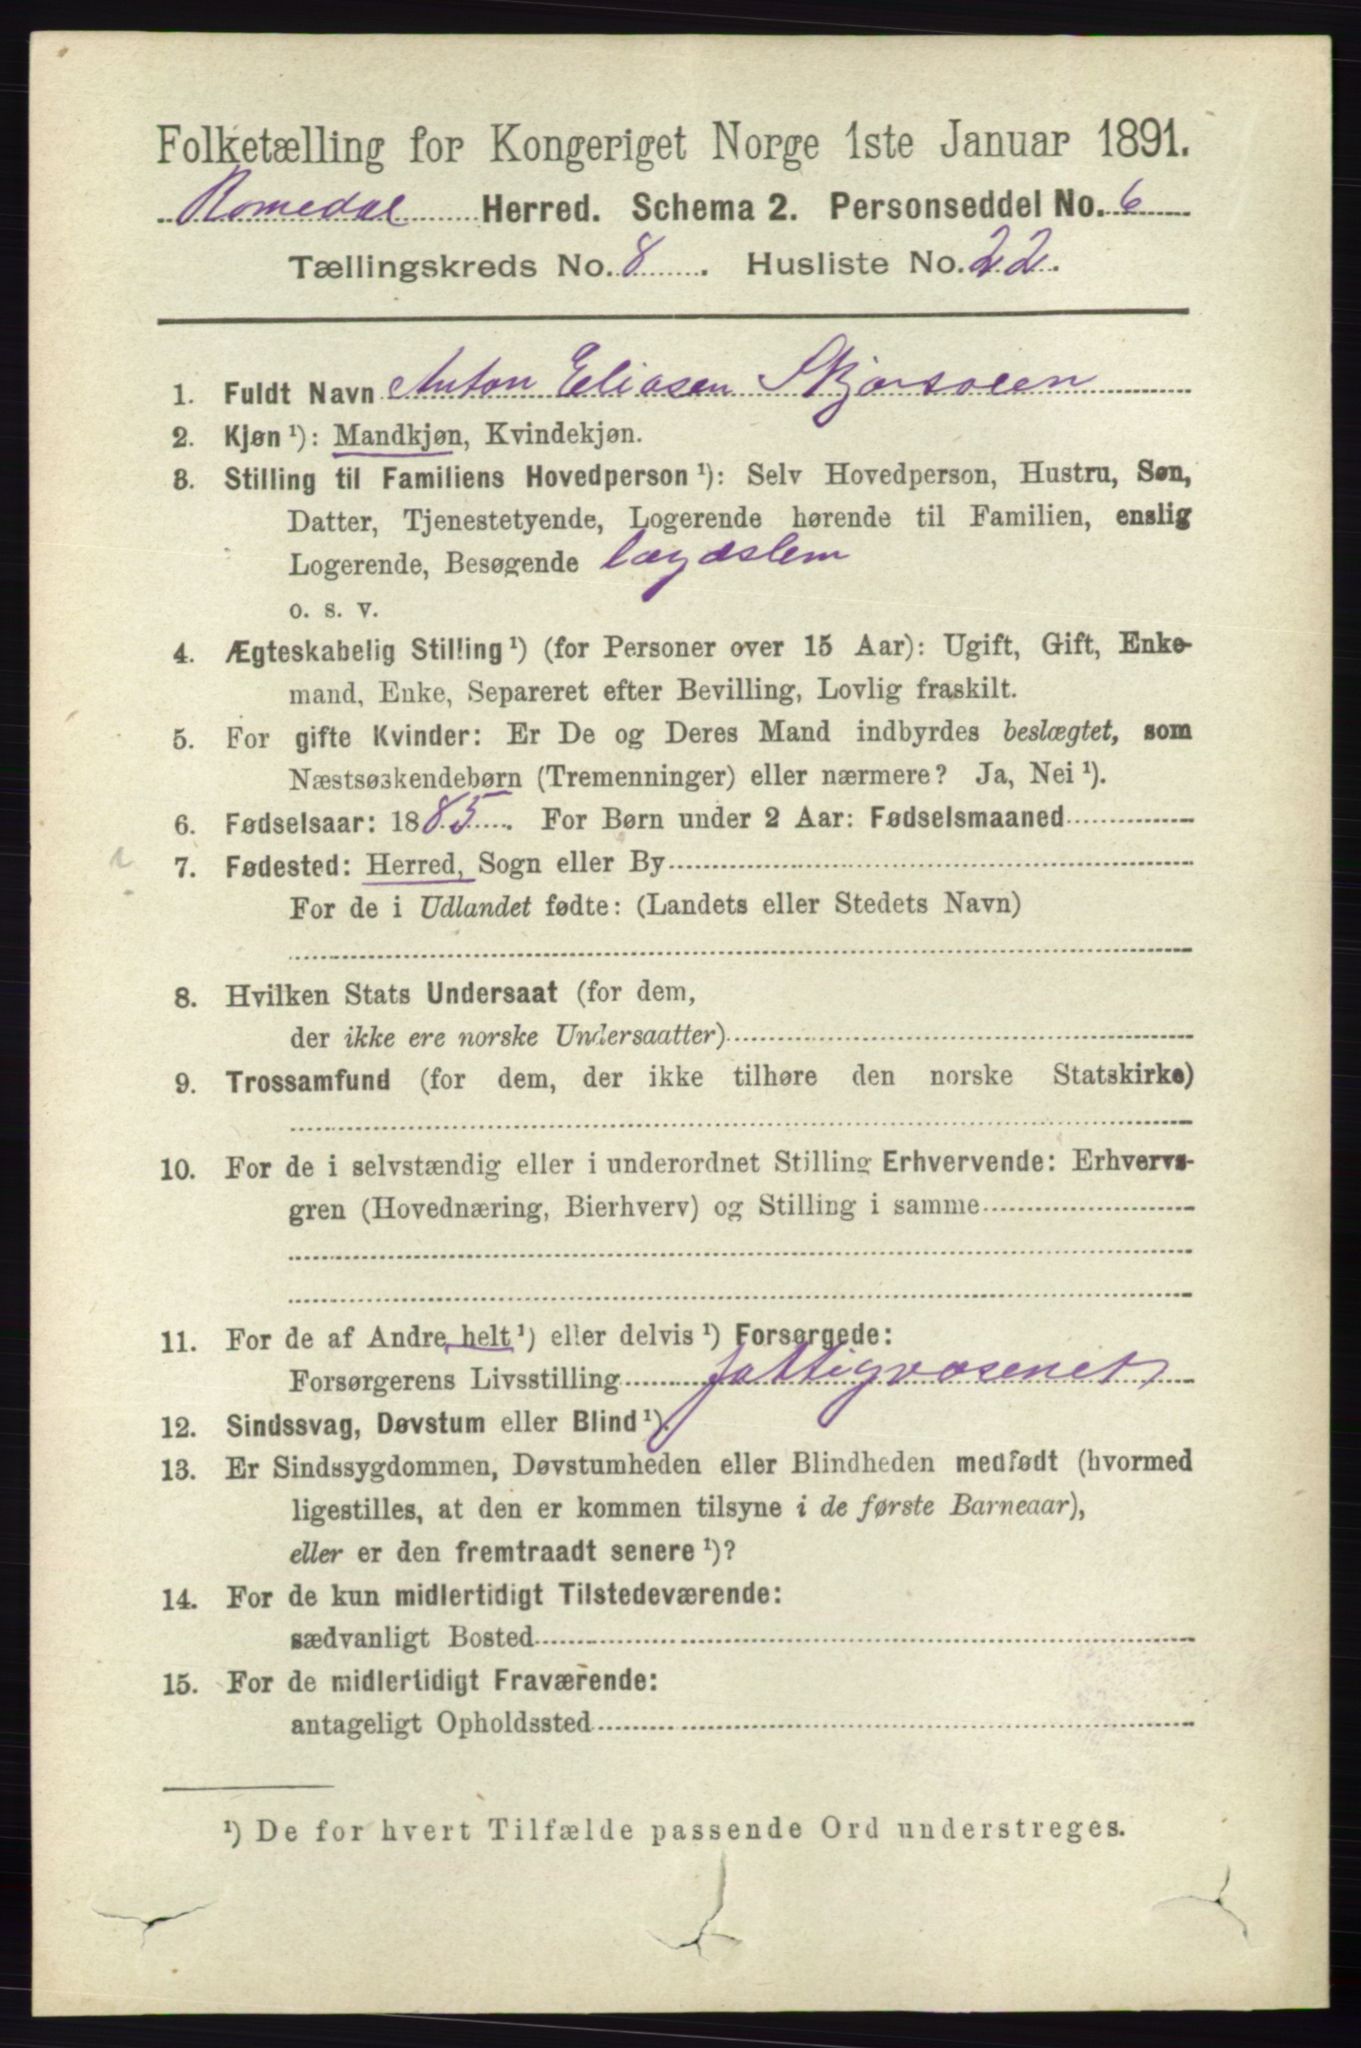 Folketælling for Kongeriget Norge 1ste Januar 1891.
Romedal Herred. Schema 2. Personseddel No. 6
Tællingskreds No. 8. Husliste No. 22.
1. Fuldt Navn Anton Eliasen
2. Kjøn ¹): Mandkjøn, Kvindekjøn.
3. Stilling til Familiens Hovedperson ¹): Selv Hovedperson, Hustru, Søn,
Datter, Tjenestetyende, Logerende hørende til Familien, enslig
Logerende, Besøgende lægdslem
o. s. v.
4. Ægteskabelig Stilling ¹) (for Personer over 15 Aar): Ugift, Gift, Enke-
mand, Enke, Separeret efter Bevilling, Lovlig fraskilt.
5. For gifte Kvinder: Er De og Deres Mand indbyrdes beslægtet, som
Næstsøskendebørn (Tremenninger) eller nærmere? Ja, Nei ¹).
6. Fødselsaar: 1885. For Børn under 2 Aar: Fødselsmaaned
7. Fødested: Herred, Sogn eller By
For de i Udlandet fødte: (Landets eller Stedets Navn)
8. Hvilken Stats Undersaat (for dem,
der ikke ere norske Undersaatter)
9. Trossamfund (for dem, der ikke tilhøre den norske Statskirke)
10. For de i selvstændig eller i underordnet Stilling Erhvervende: Erhvervs-
gren (Hovednæring, Bierhverv) og Stilling i samme
11. For de af Andre helt ¹) eller delvis ¹) Forsørgede:
Forsørgerens Livsstilling fattigvæsenet
12. Sindssvag, Døvstum eller Blind ¹).
13. Er Sindssygdommen, Døvstumheden eller Blindheden medfødt (hvormed
ligestilles, at den er kommen tilsyne i de første Barneaar),
eller er den fremtraadt senere ¹)?
14. For de kun midlertidigt Tilstedeværende:
sædvanligt Bosted
15. For de midlertidigt Fraværende:
antageligt Opholdssted
¹) De for hvert Tilfælde passende Ord understreges.